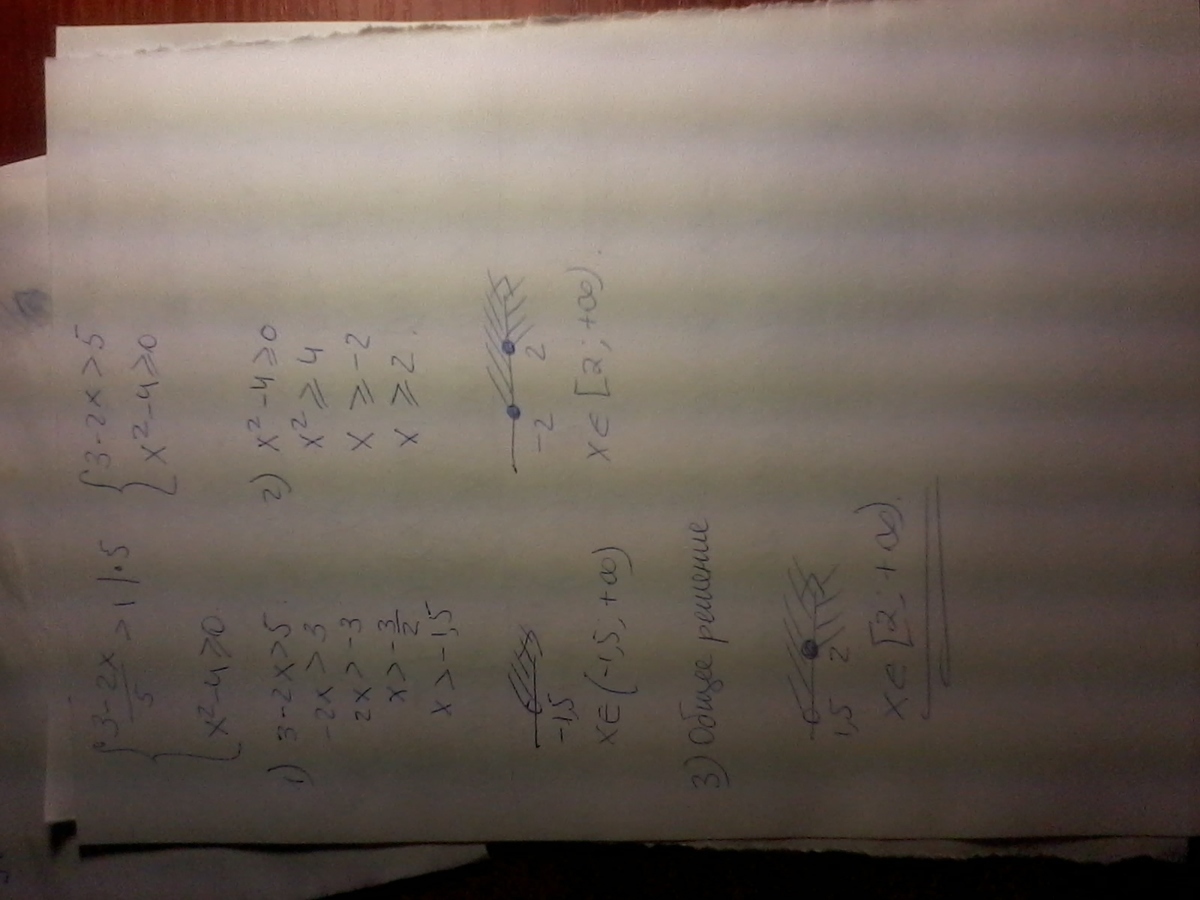 { 3-2x/5 > 1 |·5
x²-4≥0
{ 3-2x>5
x²-4≥0
1) 3-2x>5
-2x>3
2x>-3
x>-3/2
x>-1,5
-1,5
x∈(-1,5; +∞)
2) x²-4≥0
x²≥4
x≥-2
x≥2.
-2 2
x∈[2; +∞).
3) Общее решение
1,5 2
x∈[2; +∞).